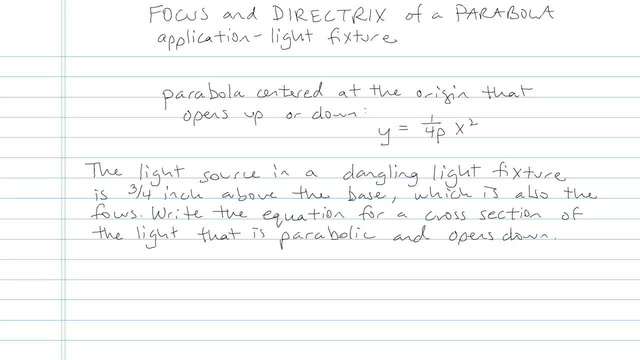 FOCUS and DIRECTRIX of a PARABOLA
application - light fixture
parabola centered at the origin that
opens up or down:
y = 1/4p x²
The light source in a dangling light fixture
is 3/4 inch above the base, which is also the
focus. Write the equation for a cross section of
the light that is parabolic and opens down.